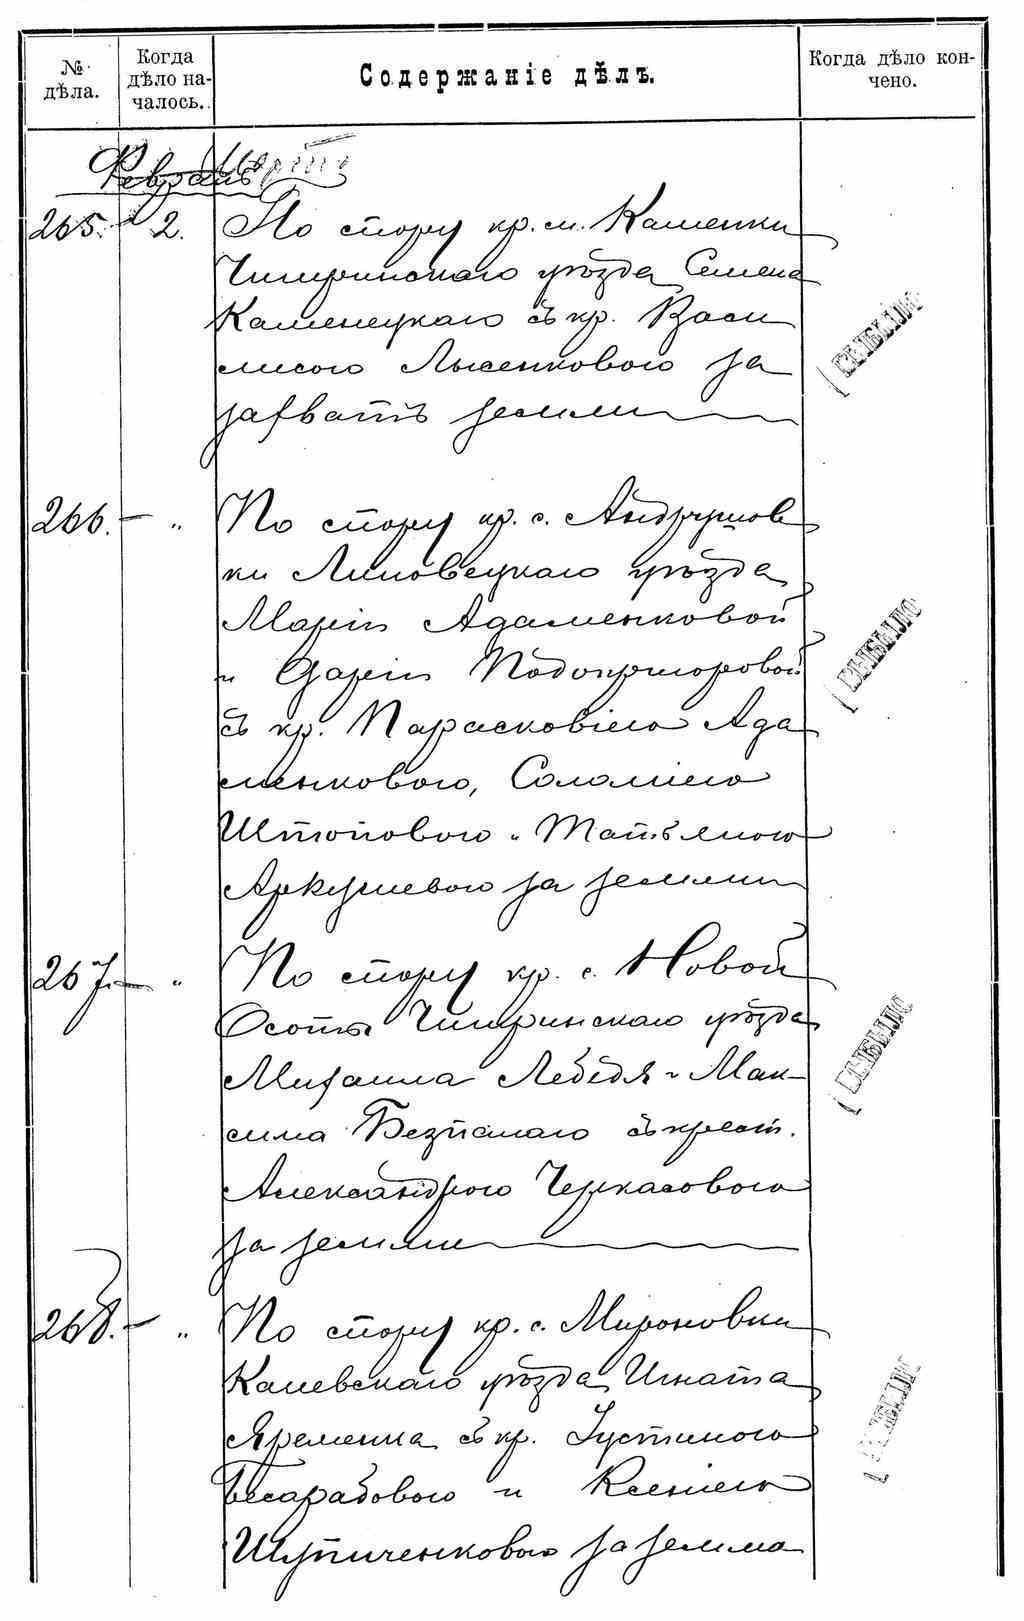 № дѣла.
Когда дѣло на-
чалось.
Содержаніе дѣлъ.
Когда дѣло кон-
чено.
Февраль Мартъ
265. 2. По спору кр. м. Каменки
Чигиринскаго уѣзда Семена
Каменецкаго съ кр. Васи
лисою Лысенковою за
захватъ земли
ВЫБЫЛО
266. — „ По спору кр. с. Андрушов
ки Липовецкаго уѣзда
Маріи Адаменковой
и Даріи Подопригоровой
съ кр. Парасковіею Ада
менковою, Соломіею
Штоповою и Татьяною
Аркушевою за землю
ВЫБЫЛО
267. — „ По спору кр. с. Новой
Осоты Чигиринскаго уѣзда
Михаила Лебедя и Мак-
сима Безпалаго съ крест.
Александрою Черкасовою
за землю
ВЫБЫЛО
268. — „ По спору кр. с. Мироновки
Каневскаго уѣзда Игната
Яременка съ кр. Іустиною
Бесарабовою и Ксеніею
Шупиченковою за земло
ВЫБЫЛО